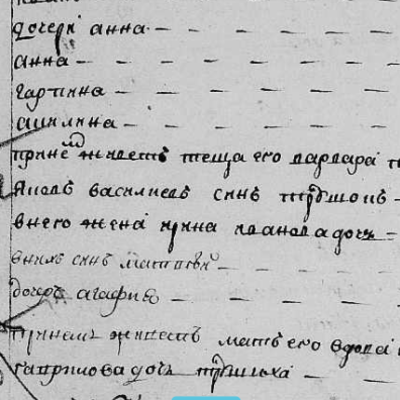 дочери анна
анна
гарпина
акилина
принемъ живетъ теща его варвара
яковъ василиевъ синъ
внего жена ирина ивановадочь
внихъ синъ матвѣй
дочерь агафия
принемъ живетъ матъ его вдова
гавриловадочь